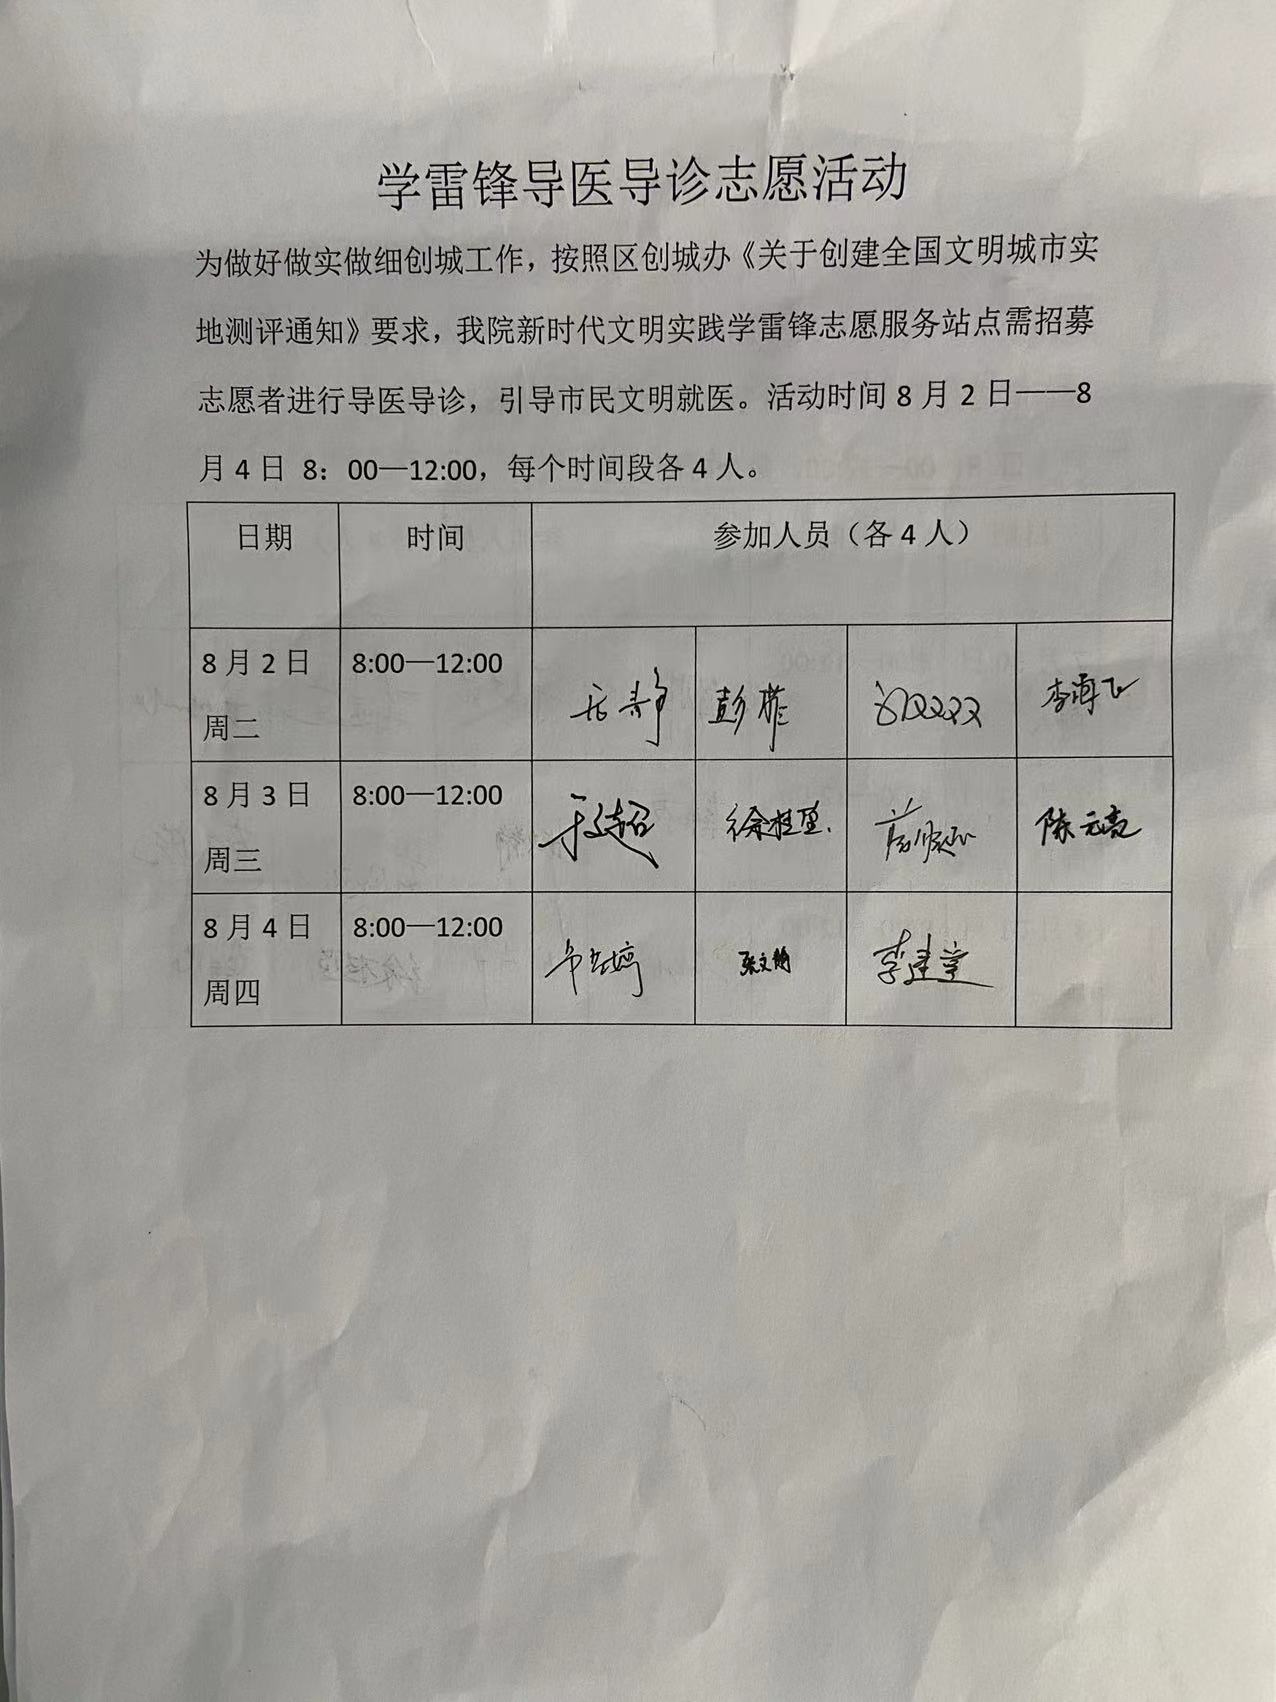 学雷锋导医导诊志愿活动
为做好做实做细创城工作，按照区创城办《关于创建全国文明城市实
地测评通知》要求，我院新时代文明实践学雷锋志愿服务站点需招募
志愿者进行导医导诊，引导市民文明就医。活动时间 8 月 2 日——8
月 4 日 8：00—12:00，每个时间段各 4 人。
日期 时间 参加人员（各 4 人）
8 月 2 日 8:00—12:00
周二
静 彭 李
8 月 3 日 8:00—12:00
周三
于超 徐桂 陈元亮
8 月 4 日 8:00—12:00
周四
婷 张文 李建堂